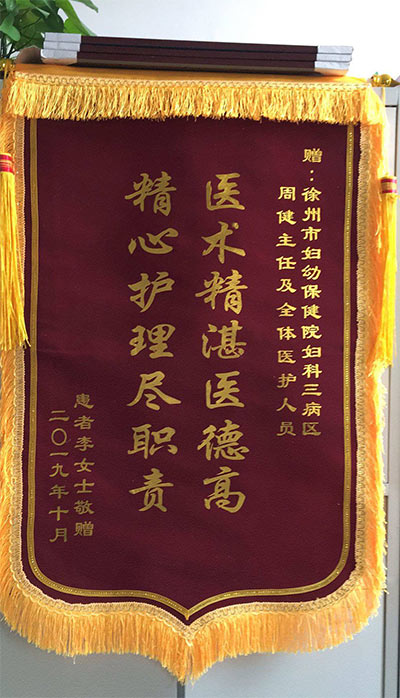 赠：徐州市妇幼保健院妇科三病区
周健主任及全体医护人员
医术精湛医德高
精心护理尽职责
患者李女士敬赠
二〇一九年十月